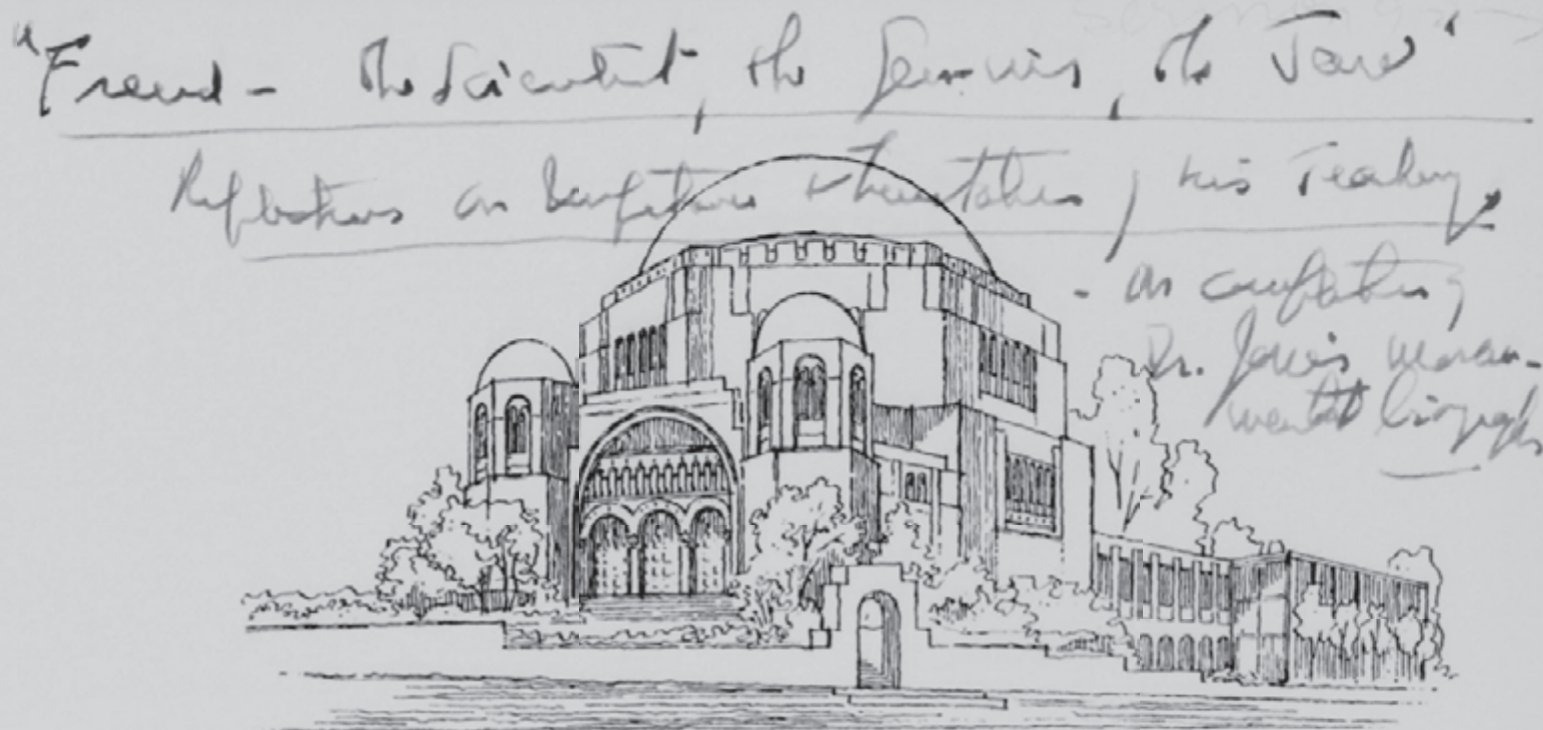 "Freud - the Scientist, the Genius, the Jew"
Reflections on Scripture & his Teaching,
- on completing
Dr. Jones' monu-
mental biography